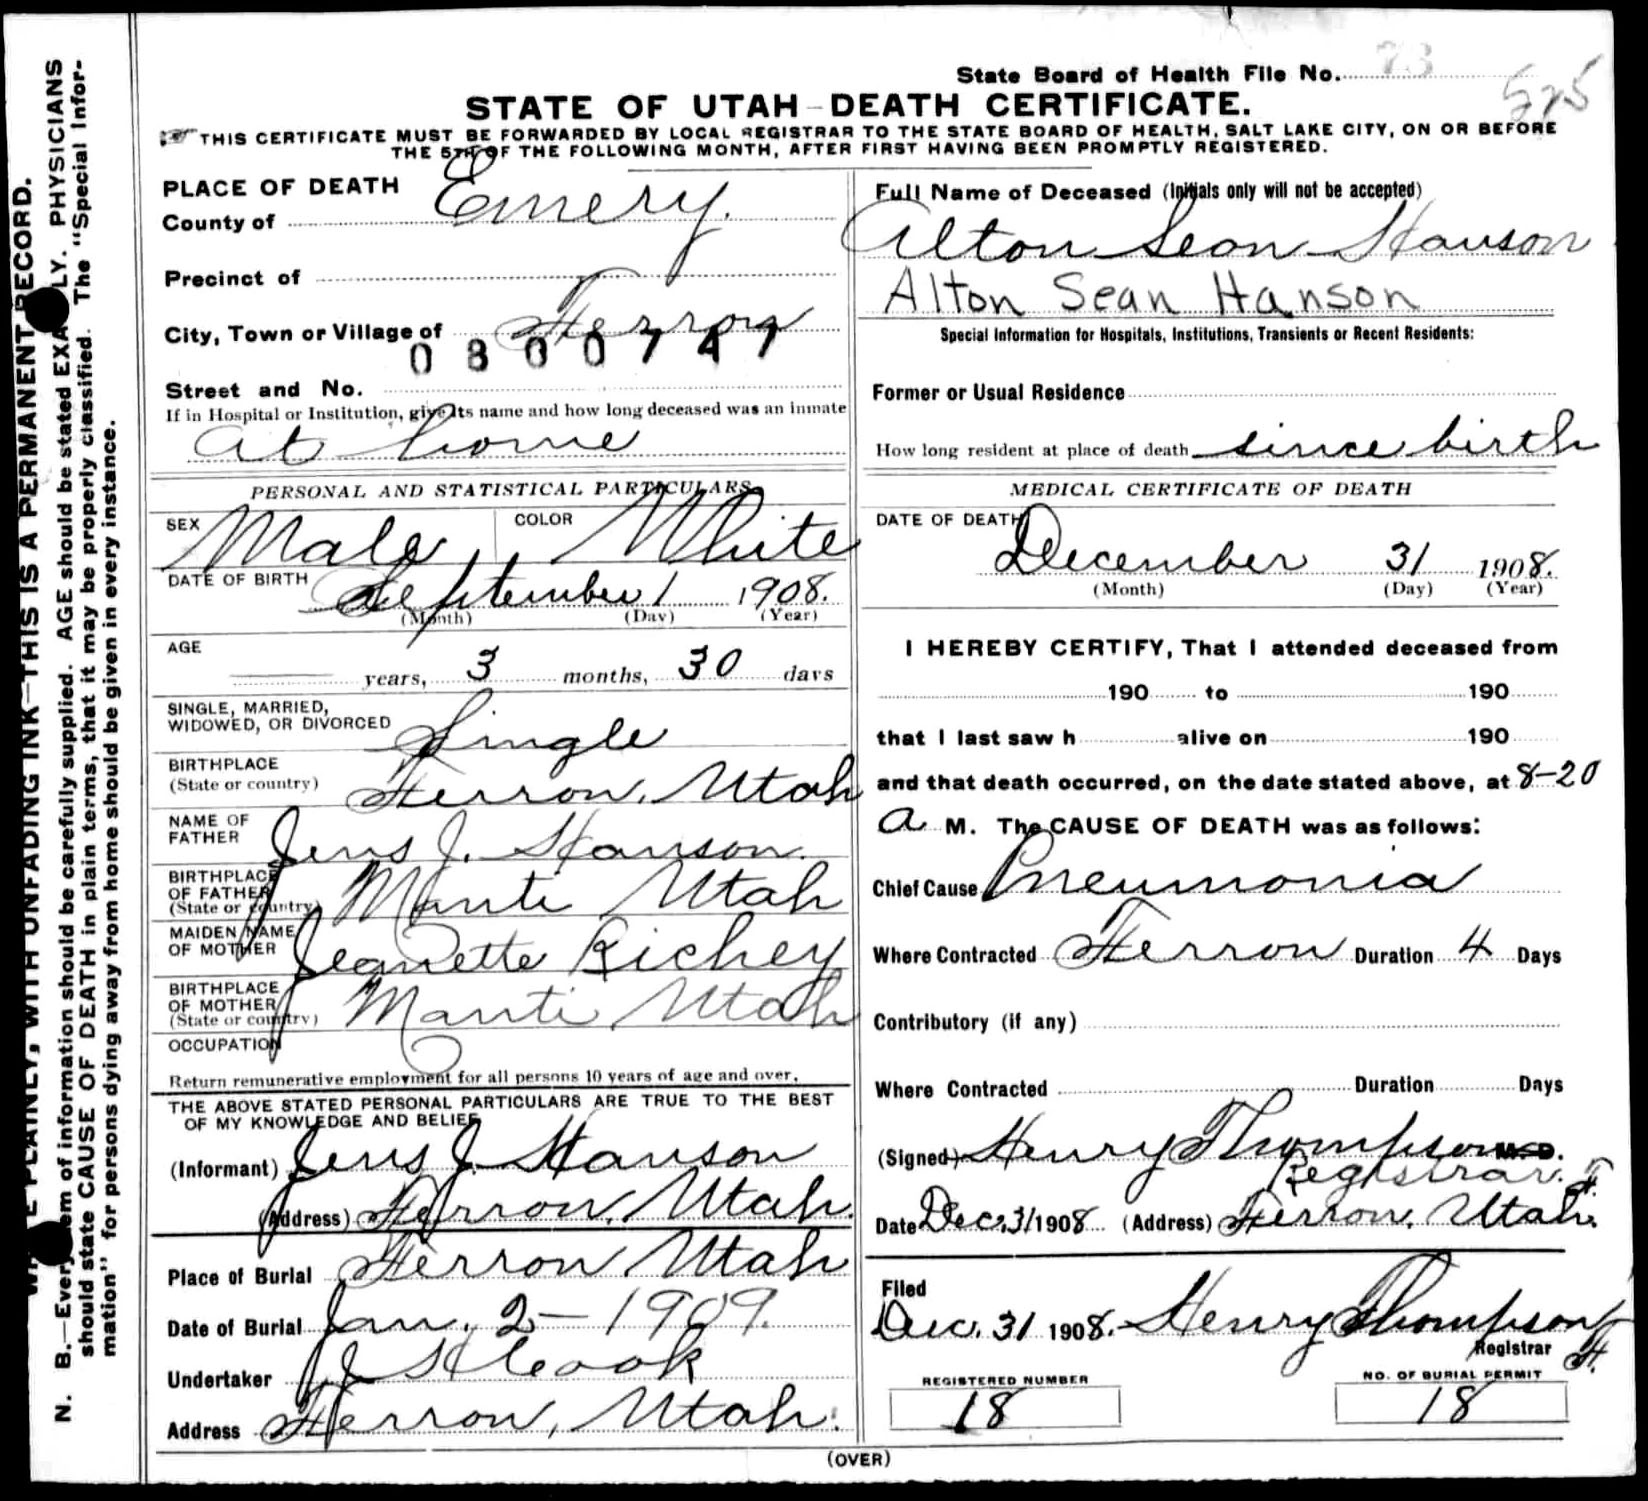 State Board of Health File No. 73
525
STATE OF UTAH—DEATH CERTIFICATE.
THIS CERTIFICATE MUST BE FORWARDED BY LOCAL REGISTRAR TO THE STATE BOARD OF HEALTH, SALT LAKE CITY, ON OR BEFORE
THE 5TH OF THE FOLLOWING MONTH, AFTER FIRST HAVING BEEN PROMPTLY REGISTERED.
PLACE OF DEATH
County of Emery.
Precinct of
City, Town or Village of Ferron
0800747
Street and No.
If in Hospital or Institution, give its name and how long deceased was an inmate
at home
PERSONAL AND STATISTICAL PARTICULARS
SEX Male COLOR White
DATE OF BIRTH September 1 1908.
(Month) (Day) (Year)
AGE
years, 3 months, 30 days
SINGLE, MARRIED,
WIDOWED, OR DIVORCED Single
BIRTHPLACE
(State or country) Ferron, Utah
NAME OF
FATHER Jens J. Hanson.
BIRTHPLACE
OF FATHER
(State or country) Manti Utah
MAIDEN NAME
OF MOTHER Jeanette Richey
BIRTHPLACE
OF MOTHER
(State or country) Manti Utah
OCCUPATION
Return remunerative employment for all persons 10 years of age and over.
THE ABOVE STATED PERSONAL PARTICULARS ARE TRUE TO THE BEST
OF MY KNOWLEDGE AND BELIEF
(Informant) Jens J. Hanson
(Address) Ferron, Utah.
Place of Burial Ferron Utah
Date of Burial Jan. 2—1909.
Undertaker J H Cook
Address Ferron, Utah.
Full Name of Deceased (Initials only will not be accepted)
Alton Sean Hanson
Alton Sean Hanson
Special Information for Hospitals, Institutions, Transients or Recent Residents:
Former or Usual Residence
How long resident at place of death since birth
MEDICAL CERTIFICATE OF DEATH
DATE OF DEATH
December 31 1908.
(Month) (Day) (Year)
I HEREBY CERTIFY, That I attended deceased from
190 to 190
that I last saw h alive on 190
and that death occurred, on the date stated above, at 8-20
a M. The CAUSE OF DEATH was as follows:
Chief Cause Pneumonia
Where Contracted Ferron Duration 4 Days
Contributory (if any)
Where Contracted Duration Days
(Signed) Henry Thompson M. D.
Registrar. H.
Date Dec. 31 1908 (Address) Ferron, Utah.
Filed
Dec. 31 1908. Henry Thompson
Registrar H.
REGISTERED NUMBER
18
NO. OF BURIAL PERMIT
18
(OVER)
N. B.—Every item of information should be carefully supplied. AGE should be stated EXACTLY. PHYSICIANS
should state CAUSE OF DEATH in plain terms, that it may be properly classified. The "Special Infor-
mation" for persons dying away from home should be given in every instance.
PLAINLY, WITH UNFADING INK—THIS IS A PERMANENT RECORD.